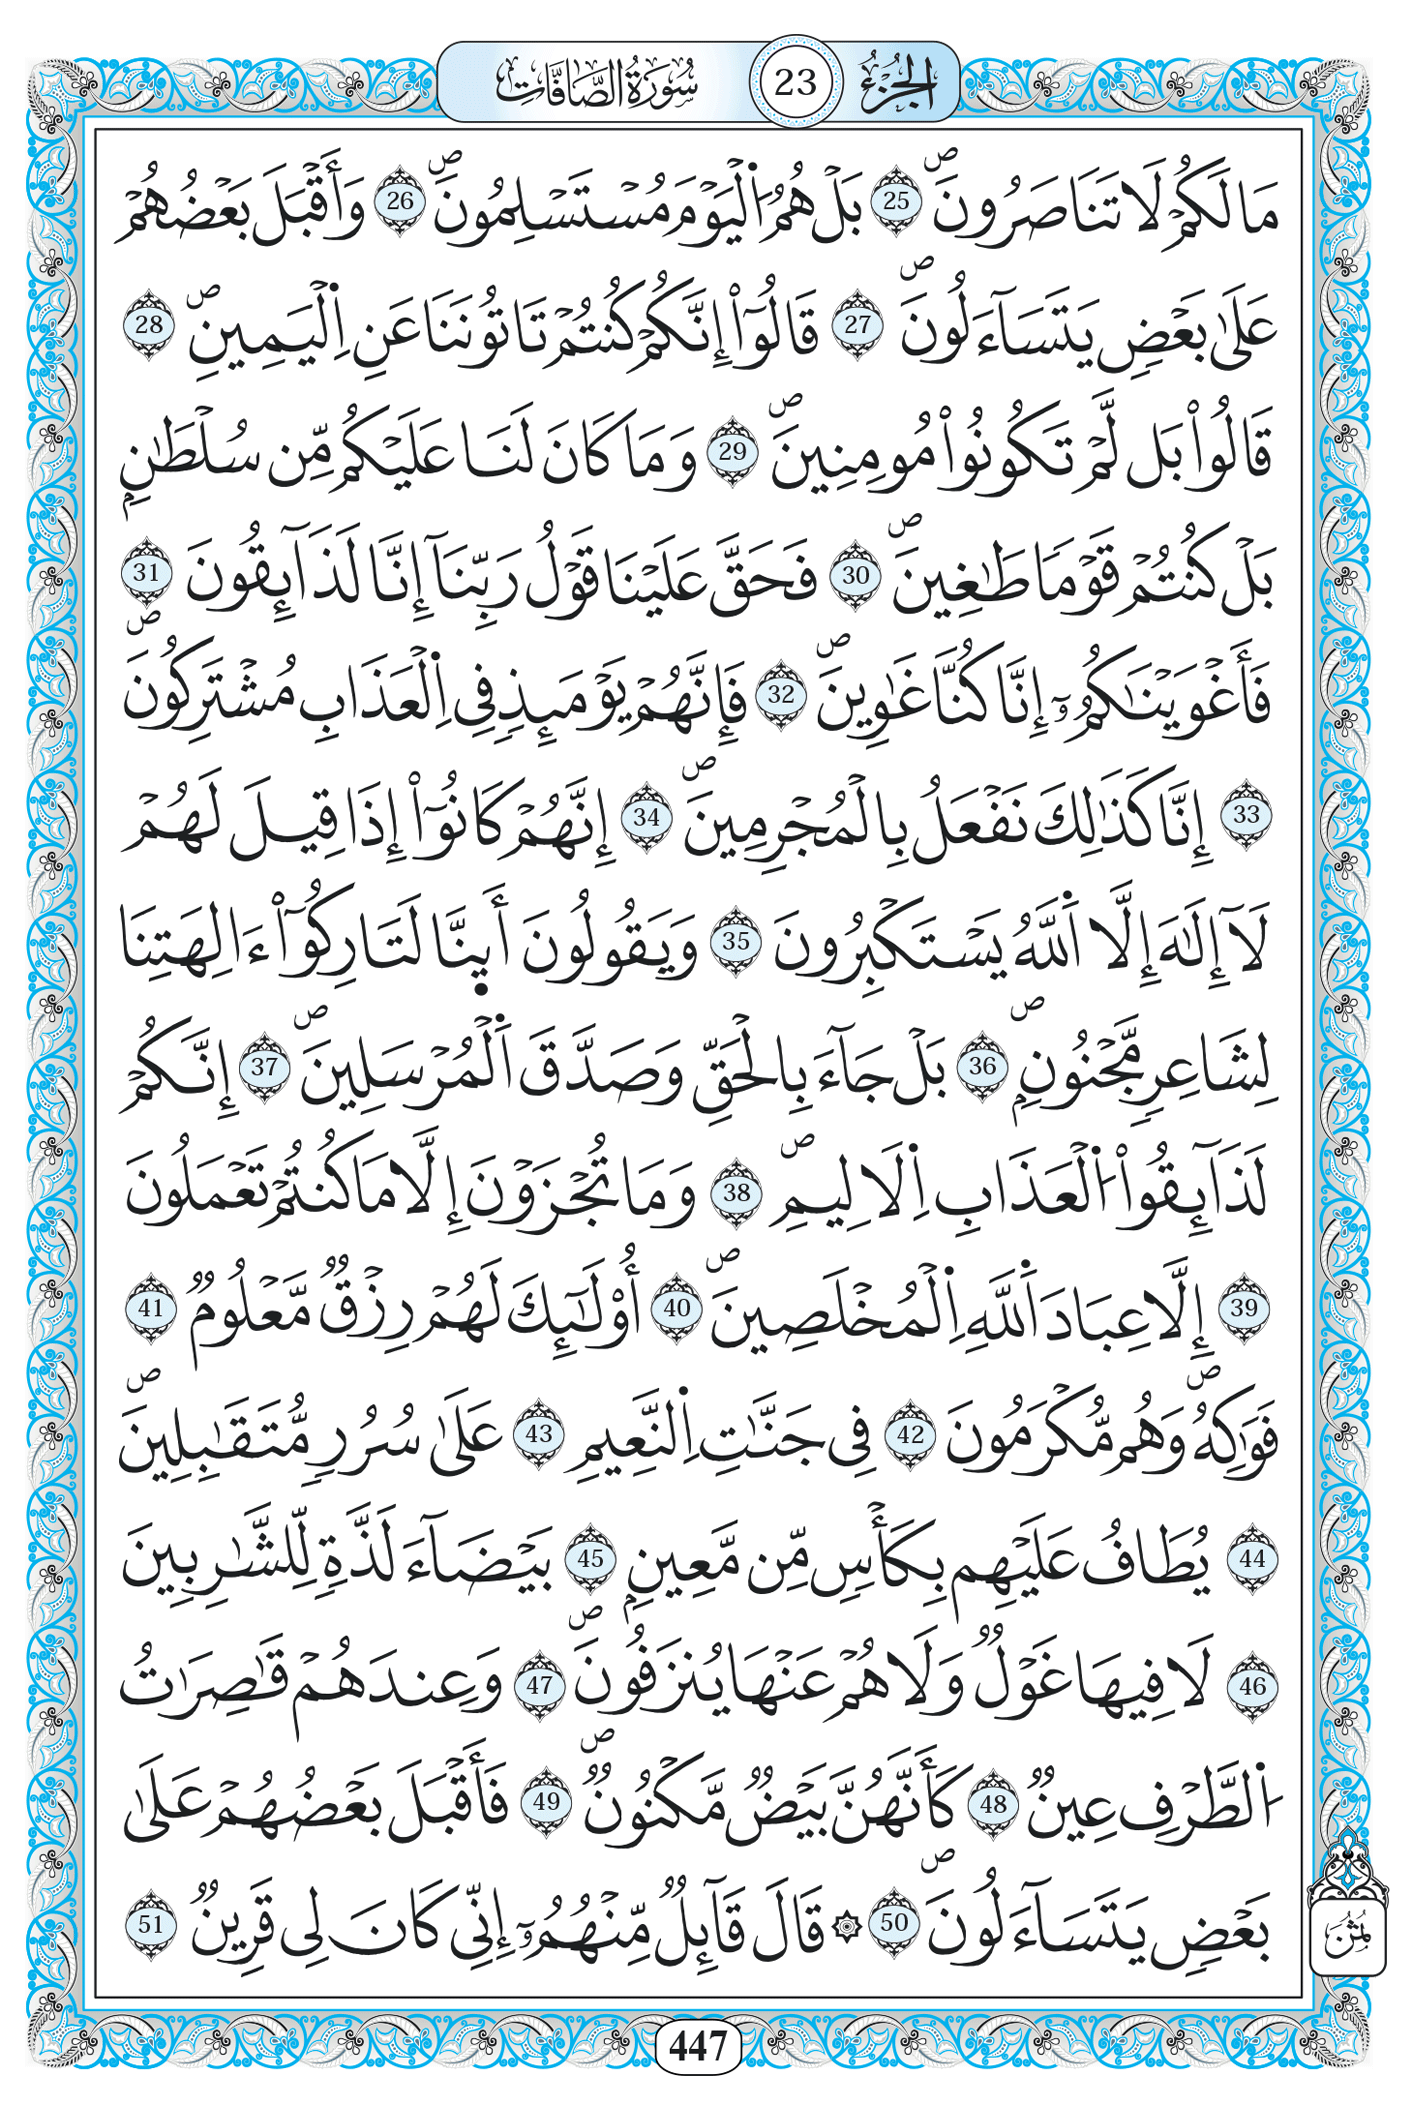 الجزء 23 سورة الصافات
مَا لَكُمْ لَا تَنَاصَرُونَ ص 25 بَلْ هُمُ اُ۬لْيَوْمَ مُسْتَسْلِمُونَ ص 26 وَأَقْبَلَ بَعْضُهُمْ
عَلَىٰ بَعْضٖ يَتَسَآءَلُونَ ص 27 قَالُوٓاْ إِنَّكُمْ كُنتُمْ تَاتُونَنَا عَنِ اِ۬لْيَمِينِ ص 28
قَالُواْ بَل لَّمْ تَكُونُواْ مُومِنِينَ ص 29 وَمَا كَانَ لَنَا عَلَيْكُم مِّن سُلْطَٰنِۢ
بَلْ كُنتُمْ قَوْماٗ طَٰغِينَ ص 30 فَحَقَّ عَلَيْنَا قَوْلُ رَبِّنَآ إِنَّا لَذَآئِقُونَ ص 31
فَأَغْوَيْنَٰكُمُۥٓ إِنَّا كُنَّا غَٰوِينَ ص 32 فَإِنَّهُمْ يَوْمَئِذٖ فِي اِ۬لْعَذَابِ مُشْتَرِكُونَ
33 إِنَّا كَذَٰلِكَ نَفْعَلُ بِالْمُجْرِمِينَ ص 34 إِنَّهُمْ كَانُوٓاْ إِذَا قِيلَ لَهُمْ
لَآ إِلَٰهَ إِلَّا اَ۬للَّهُ يَسْتَكْبِرُونَ 35 وَيَقُولُونَ أَى۪نَّا لَتَارِكُوٓاْ ءَالِهَتِنَا
لِشَاعِرٖ مَّجْنُونِۢ ص 36 بَلْ جَآءَ بِالْحَقِّ وَصَدَّقَ اَ۬لْمُرْسَلِينَ ص 37 إِنَّكُمْ
لَذَآئِقُواْ اُ۬لْعَذَابِ اِ۬لَالِيمِ ص 38 وَمَا تُجْزَوْنَ إِلَّا مَا كُنتُمْ تَعْمَلُونَ
39 إِلَّا عِبَادَ اَ۬للَّهِ اِ۬لْمُخْلَصِينَ ص 40 أُوْلَٰٓئِكَ لَهُمْ رِزْقٞ مَّعْلُومٞ 41
فَوَٰكِهُ ص وَهُم مُّكْرَمُونَ 42 فِي جَنَّٰتِ اِ۬لنَّعِيمِ 43 عَلَىٰ سُرُرٖ مُّتَقَٰبِلِينَ ص
44 يُطَافُ عَلَيْهِم بِكَأْسٖ مِّن مَّعِينِۢ 45 بَيْضَآءَ لَذَّةٖ لِّلشَّٰرِبِينَ
46 لَا فِيهَا غَوْلٞ وَلَا هُمْ عَنْهَا يُنزَفُونَ ص 47 وَعِندَهُمْ قَٰصِرَٰتُ
اُ۬لطَّرْفِ عِينٞ 48 كَأَنَّهُنَّ بَيْضٞ مَّكْنُونٞ ص 49 فَأَقْبَلَ بَعْضُهُمْ عَلَىٰ
بَعْضٖ يَتَسَآءَلُونَ ص 50 ۞ قَالَ قَآئِلٞ مِّنْهُمُۥٓ إِنِّي كَانَ لِي قَرِينٞ 51
ثمن
447